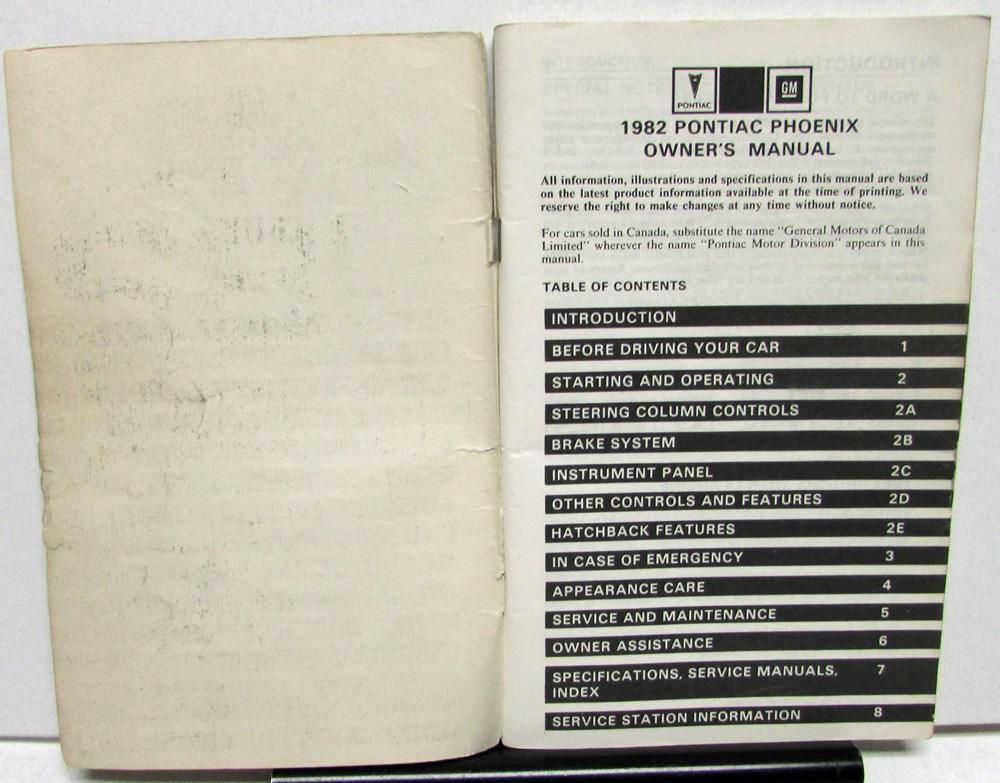 PONTIAC
GM
1982 PONTIAC PHOENIX
OWNER'S MANUAL
All information, illustrations and specifications in this manual are based
on the latest product information available at the time of printing. We
reserve the right to make changes at any time without notice.
For cars sold in Canada, substitute the name "General Motors of Canada
Limited" wherever the name "Pontiac Motor Division" appears in this
manual.
TABLE OF CONTENTS
INTRODUCTION
BEFORE DRIVING YOUR CAR 1
STARTING AND OPERATING 2
STEERING COLUMN CONTROLS 2A
BRAKE SYSTEM 2B
INSTRUMENT PANEL 2C
OTHER CONTROLS AND FEATURES 2D
HATCHBACK FEATURES 2E
IN CASE OF EMERGENCY 3
APPEARANCE CARE 4
SERVICE AND MAINTENANCE 5
OWNER ASSISTANCE 6
SPECIFICATIONS, SERVICE MANUALS, 7
INDEX
SERVICE STATION INFORMATION 8